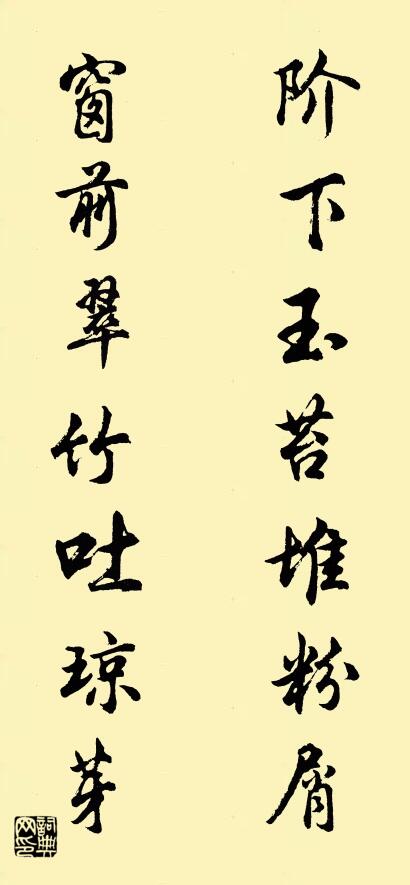 阶下玉苔堆粉屑
窗前翠竹吐琼芽
词典网印